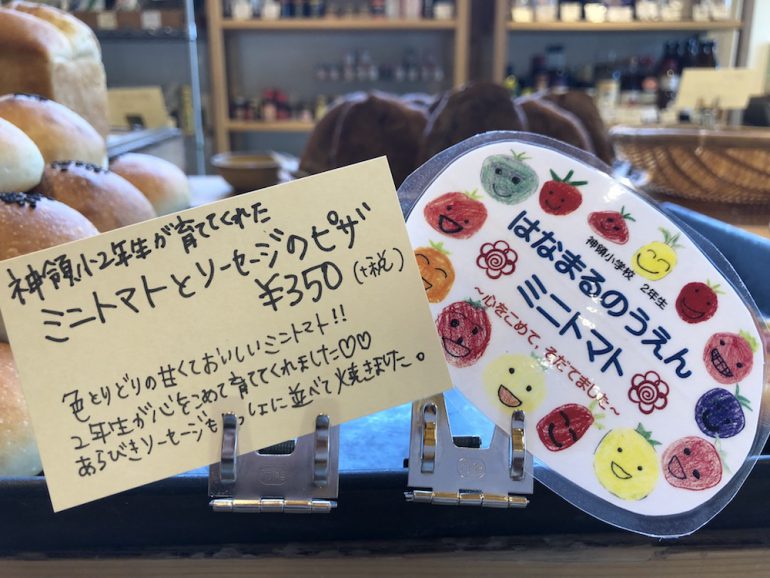 神領小2年生が育ててくれた
ミニトマトとソーセージのピザ
¥350(+税)
色とりどりの甘くておいしいミニトマト!!
2年生が心をこめて育ててくれました♡♡
あらびきソーセージもいっしょに並べて焼きました。
神領小学校 2年生
はなまるのうえん
ミニトマト
～心をこめて、そだてました～